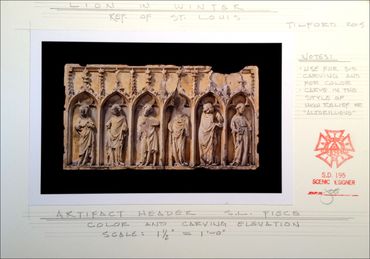 LION IN WINTER
KEY. OF ST. LOUIS
TILFORD 2005
NOTES:
• USE FOR BIG
CARVING AND
FOR COLOR
• CARVE IN THE
STYLE OF
HIGH RELIEF OR
S.D. 195
SCENIC DESIGNER
ARTIFACT HEADER S.L. PIECE
COLOR AND CARVING ELEVATION
SCALE: 1½" = 1'-0"